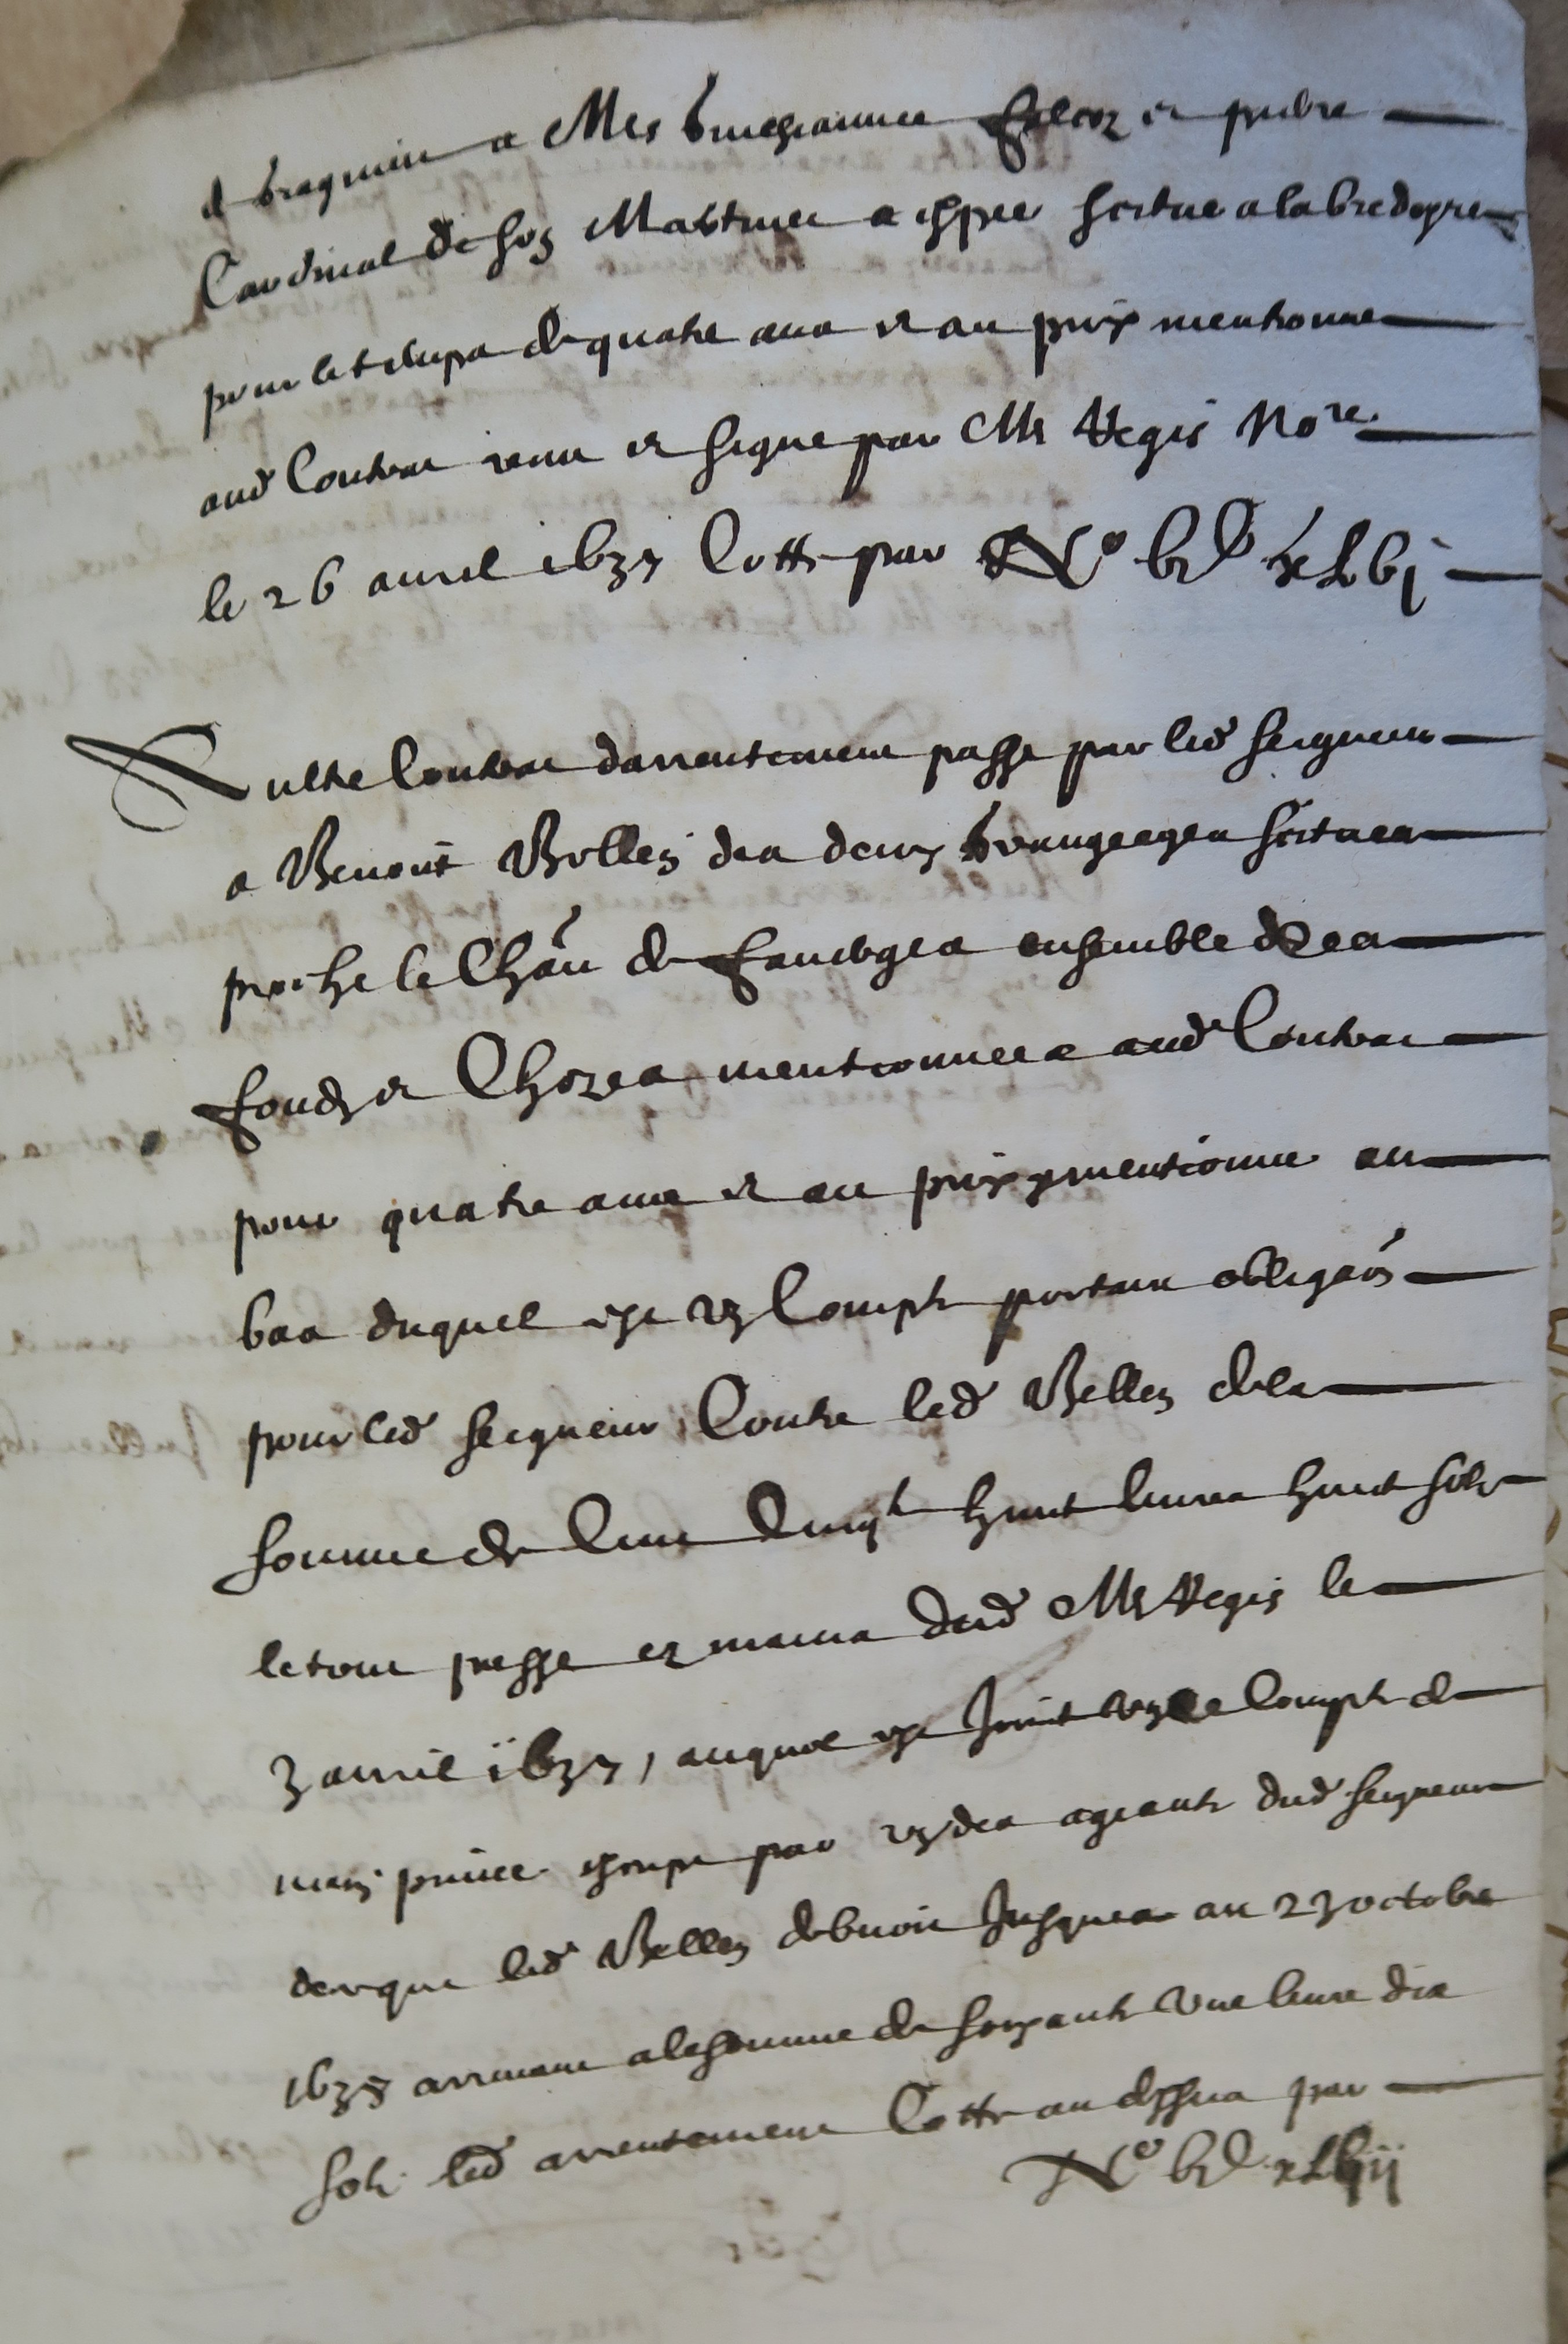 de Bragmin a Mes et pierre
Cardinal de son a espee scitue a
pour le temps de quatre ans et au prix mentionne
aud Contrat receu et signe par Me Regis No.re
le 26 auril 1637 Cotte par N° bc xLbj
Aultre Contrat darrentement passe par led seigneur
a Benoit Bellen des deux scitues
proche le Chau de ensemble des
fondz et Chozes mentionnees aud Contrat
pour quatre ans et au prix y mentionne au
bas duquel est ung Compte portant obligaon
pour led seigneur Contre led Bellen de la
somme de Cent huit liures huit solz
le tout passe ez mains dud Me Regis le
3 auril 1637, auquel est joint ung Compte de
main priuee par ung des ageantz dud seigneur
de ce que led Bellen debuoit jusques au 23 octobre
1638 arriuant a la somme de soixante une liure dix
solz led arrentement Cotte au dessus par
N° bc xLbij